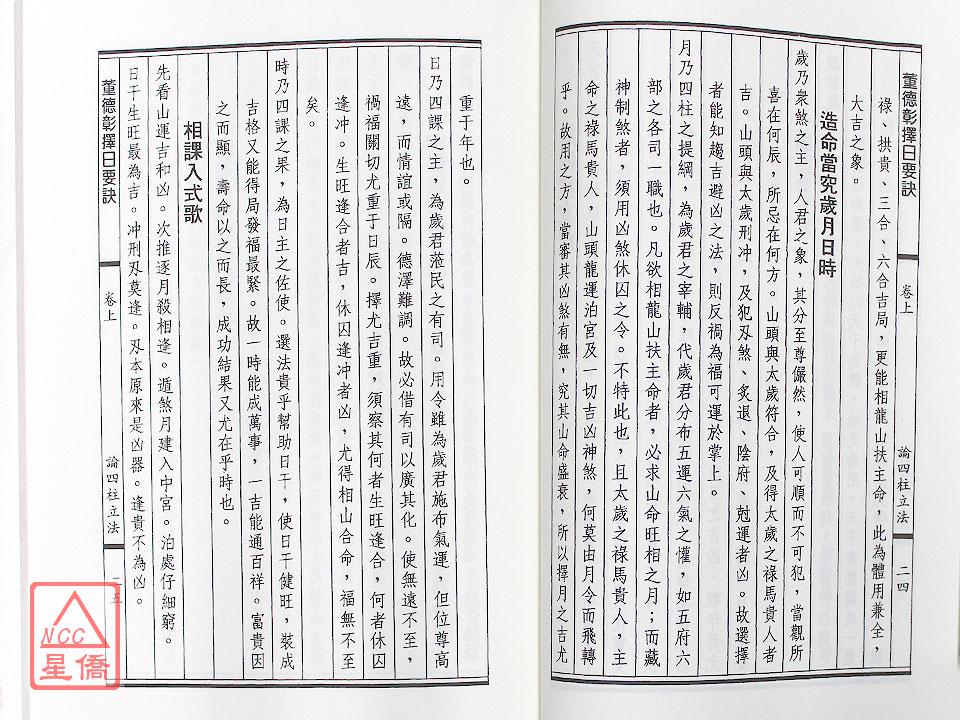 董德彰擇日要訣
卷上
論四柱立法
二四
祿、拱貴、三合、六合吉局，更能相龍山扶主命，此為體用兼全，
大吉之象。
造命當究歲月日時
歲乃衆煞之主，人君之象，其分至尊儼然，使人可順而不可犯，當觀所
喜在何辰，所忌在何方。山頭與太歲符合，及得太歲之祿馬貴人者
吉。山頭與太歲刑冲，及犯刄煞、炙退、陰府、尅運者凶。故選擇
者能知趨吉避凶之法，則反禍為福可運於掌上。
月乃四柱之提綱，為歲君之宰輔，代歲君分布五運六氣之懽，如五府六
部之各司一職也。凡欲相龍山扶主命者，必求山命旺相之月；而藏
神制煞者，須用凶煞休囚之令。不特此也，且太歲之祿馬貴人，主
命之祿馬貴人，山頭龍運泊宮及一切吉凶神煞，何莫由月令而飛轉
乎。故用之方，當審其凶煞有無，究其山命盛衰，所以擇月之吉尤
重于年也。
日乃四課之主，為歲君蒞民之有司。用令雖為歲君施布氣運，但位尊高
遠，而情誼或隔。德澤難調。故必借有司以廣其化。使無遠不至，
禍福關切尤重于日辰。擇尤吉重，須察其何者生旺逢合，何者休囚
逢冲。生旺逢合者吉，休囚逢冲者凶，尤得相山合命，福無不至
矣。
時乃四課之果，為日主之佐使。選法貴乎幫助日干，使日干健旺，裝成
吉格又能得局發福最緊。故一時能成萬事，一吉能通百祥。富貴因
之而顯，壽命以之而長，成功結果又尤在乎時也。
相課入式歌
先看山運吉和凶。次推逐月殺相逢。遁煞月建入中宮。泊處仔細窮。
日干生旺最為吉。冲刑刄莫逢。刄本原來是凶器。逢貴不為凶。
董德彰擇日要訣
卷上
論四柱立法
二五
NCC
星僑